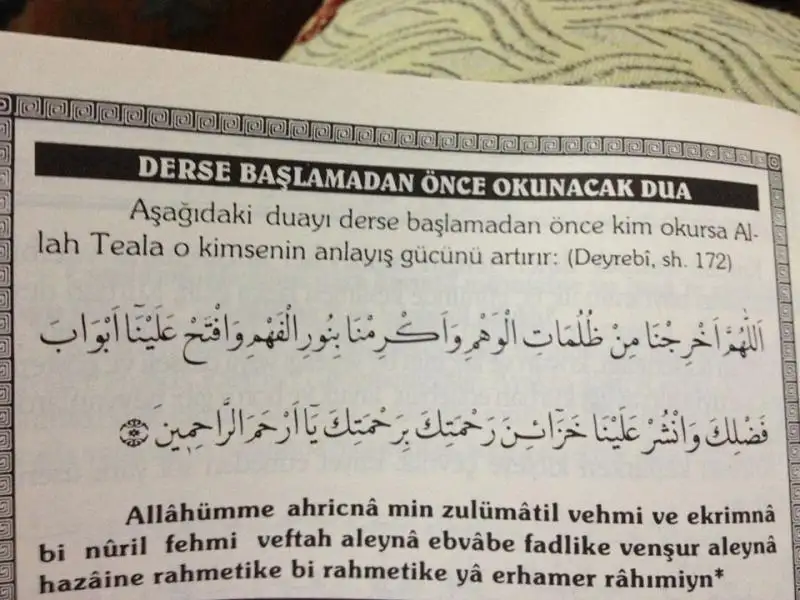 DERSE BAŞLAMADAN ÖNCE OKUNACAK DUA
Aşağıdaki duayı derse başlamadan önce kim okursa Al-
lah Teala o kimsenin anlayış gücünü artırır: (Deyrebî, sh. 172)
اَللّٰهُمَّ اَخْرِجْنَا مِنْ ظُلُمَاتِ الْوَهْمِ وَاَكْرِمْنَا بِنُورِ الْفَهْمِ وَافْتَحْ عَلَيْنَٓا اَبْوَابَ
فَضْلِكَ وَانْشُرْ عَلَيْنَا خَزَٓائِنَ رَحْمَتِكَ بِرَحْمَتِكَ يَٓا اَرْحَمَ الرَّاحِمِينَ
Allâhümme ahricnâ min zulümâtil vehmi ve ekrimnâ
bi nûril fehmi veftah aleynâ ebvâbe fadlike venşur aleynâ
hazâine rahmetike bi rahmetike yâ erhamer râhımiyn*